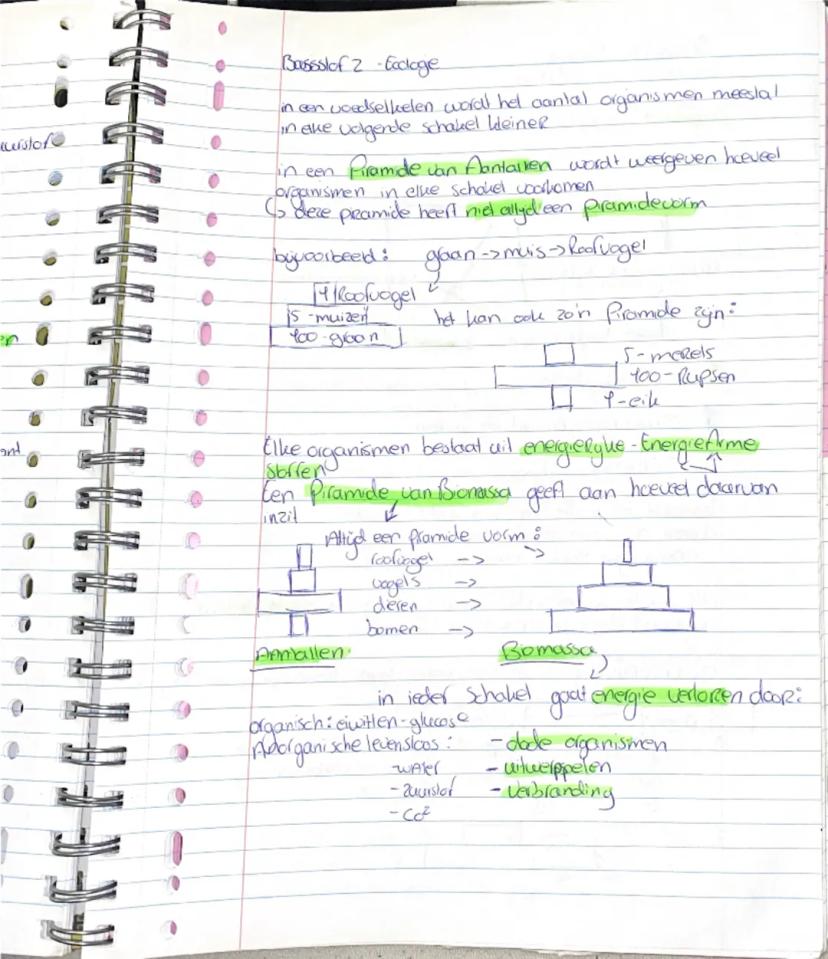 uurstof
en
and
Basisstof 2 - Ecologe
in een voedselketen wordt het aantal organismen meestal
in elke volgende schakel kleiner
in een Piramide van Aantallen wordt weergeven hoeveel
organismen in elke schakel voorkomen
↳ deze piramide heeft niet altijd een piramidevorm
bijvoorbeeld: graan -> muis -> Roofvogel
1 Roofvogel
5 - muizen
100 - graan
het kan ook zo'n Piramide zijn:
5 - merels
100 - Rupsen
1 - eik
Elke organismen bestaat uit energierijke - EnergieArme
stoffen
Een Piramide van Biomassa geeft aan hoeveel daarvan
in zit
Altijd een piramide vorm:
roofvogel ->
vogels ->
dieren ->
bomen ->
Aantallen
Biomassa
in ieder schakel gaat energie verloren door:
organisch: eiwitten - glucose
Anorganische levensloos:
- water
- zuurstof
- Co²
- dode organismen
- uitwerppelen
- Verbranding